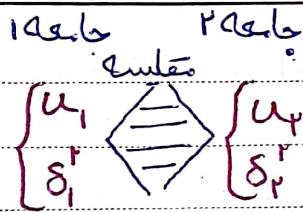 جامعه ۱ جامعه ۲
مقایسه
μ₁ μ₂
δ₁² δ₂²